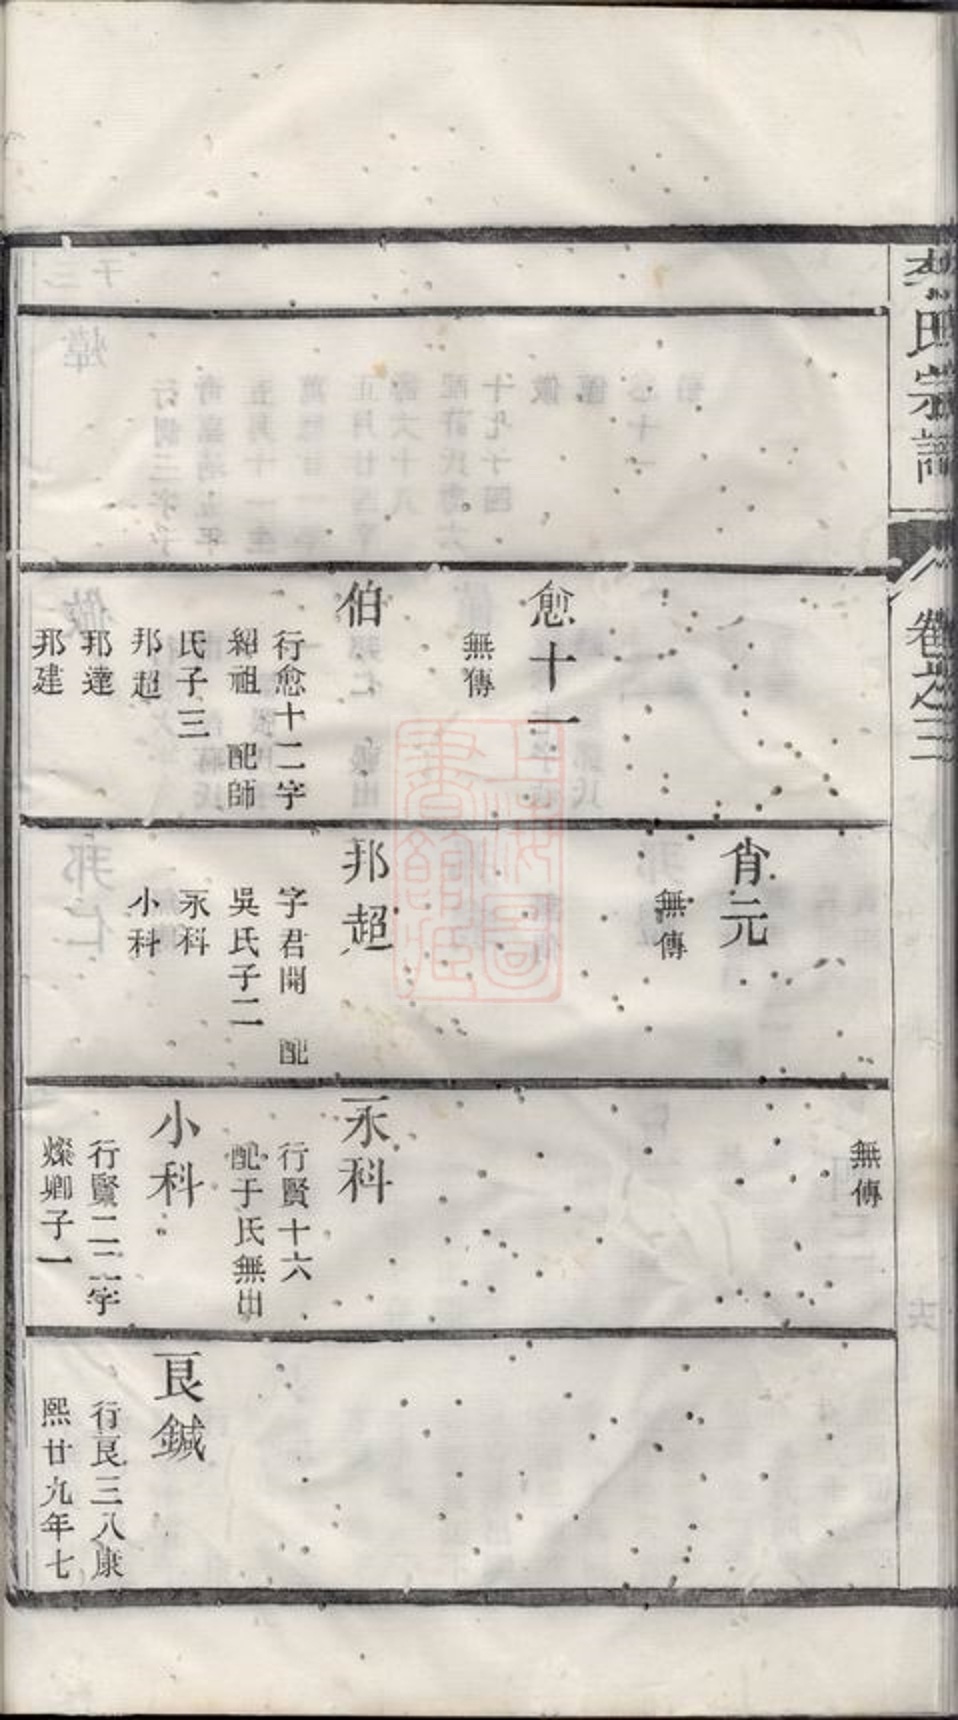 氏宗譜
卷之三
愈十一
無傳
伯
行愈十二字
紹祖 配師
氏子三
邦超
邦達
邦建
肯元
無傳
邦超
字君開 配
吳氏子二
永科
小科
無傳
永科
行賢十六
配于氏無出
小科
行賢二二字
燦卿子一
艮鍼
行艮三八康
熙廿九年七